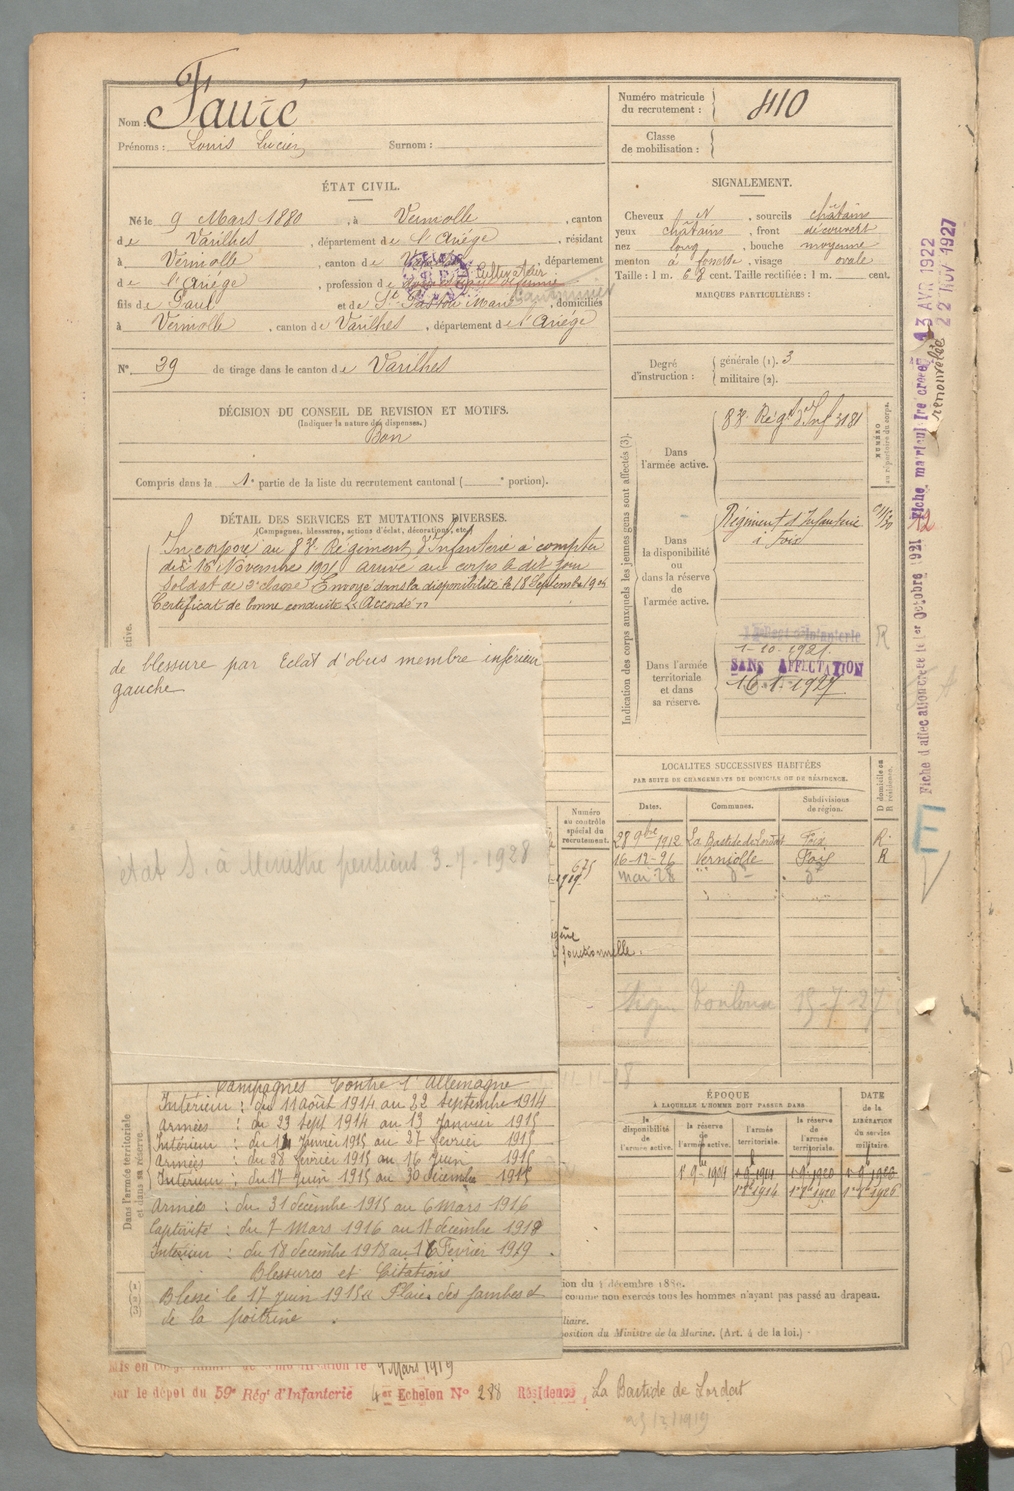 Nom : Fauré
Prénoms : Louis Lucien Surnom :
Numéro matricule du recrutement : 410
Classe de mobilisation :
ÉTAT CIVIL.
Né le 9 Mars 1880, à Verniolle, canton
de Varilhes, département de l'Ariége, résidant
à Verniolle, canton de Varilhes, département
de l'Ariége, profession de Cultivateur
fils de Paul et de Marie, domiciliés
à Verniolle, canton de Varilhes, département de l'Ariége
N° 39 de tirage dans le canton de Varilhes
DÉCISION DU CONSEIL DE REVISION ET MOTIFS.
(Indiquer la nature des dispenses.)
Bon
Compris dans la 1e partie de la liste du recrutement cantonal ( e portion).
DÉTAIL DES SERVICES ET MUTATIONS DIVERSES.
(Campagnes, blessures, actions d'éclat, décorations, etc.)
Incorporé au 83e Régiment d'Infanterie à compter
du 16 Novembre 1901 arrivé au corps le dit jour
Soldat de 2e classe. Envoyé dans la disponibilité le 18 Septembre 19
Certificat de bonne conduite Accordé
de blessure par Eclat d'obus membre inférieur
gauche
état S. à Ministre pensions 3-7-1928
Campagnes Contre l'Allemagne
Intérieur : du 11 août 1914 au 22 septembre 1914
Armées : du 23 sept 1914 au 13 Janvier 1915
Intérieur : du 14 Janvier 1915 au 27 février 1915
Armées : du 28 février 1915 au 16 Juin 1915
Intérieur : du 17 juin 1915 au 30 décembre 1915
Armées : du 31 décembre 1915 au 6 Mars 1916
Captivité : du 7 Mars 1916 au 17 decembre 1918
Intérieur : du 18 decembre 1918 au 16 Février 1919.
Blessures et Citations
Blessé le 17 juin 1915 Plaies des jambes et
de la poitrine.
Dans l'armée territoriale et dans sa réserve.
SIGNALEMENT.
Cheveux N, sourcils châtains
yeux châtains, front découvert
nez long, bouche moyenne
menton à fossette, visage ovale
Taille : 1 m. 68 cent. Taille rectifiée : 1 m. cent.
MARQUES PARTICULIÈRES :
Degré d'instruction : générale (1). 3
militaire (2).
Indication des corps auxquels les jeunes gens sont affectés (3).
NUMÉRO au répertoire du corps.
Dans l'armée active.
83e Régt d'Inf 3181
Dans la disponibilité ou dans la réserve de l'armée active.
Régiment d'Infanterie
à Foix
Dans l'armée territoriale et dans sa réserve.
1-10-1921
SANS AFFECTATION
16-1-1927
R
LOCALITÉS SUCCESSIVES HABITÉES
PAR SUITE DE CHANGEMENTS DE DOMICILE OU DE RÉSIDENCE.
Dates. Communes. Subdivisions de région. D domicile ou R résidence.
28 9bre 1912 La Bastide de Lordat Foix R.
16-12-26 Verniolle Foix R
mai-28 " d° d°
15-7-27
Numéro au contrôle spécial du recrutement.
675
1919
fonctionnelle.
ÉPOQUE
À LAQUELLE L'HOMME DOIT PASSER DANS
la disponibilité de l'armée active.
la réserve de l'armée active.
l'armée territoriale.
la réserve de l'armée territoriale.
DATE de la LIBÉRATION du service militaire.
1er 9bre 1904
1er 8bre 1914 1er 8bre 1920 1er 8bre 1926
ion du 1 décembre 1880.
comme non exercés tous les hommes n'ayant pas passé au drapeau.
liaire.
position du Ministre de la Marine. (Art. 4 de la loi.)
Mis en congé illimité de démobilisation le 9 Mars 1919
par le dépot du 59e Régt d'Infanterie 4er Echelon N° 288 Résidence, La Bastide de Lordat
Fiche d'affectation créée le 1er Octobre 1921 Fiche matricul-Ire créée 13 AVR 1922
renouvelée 22 NOV 1927